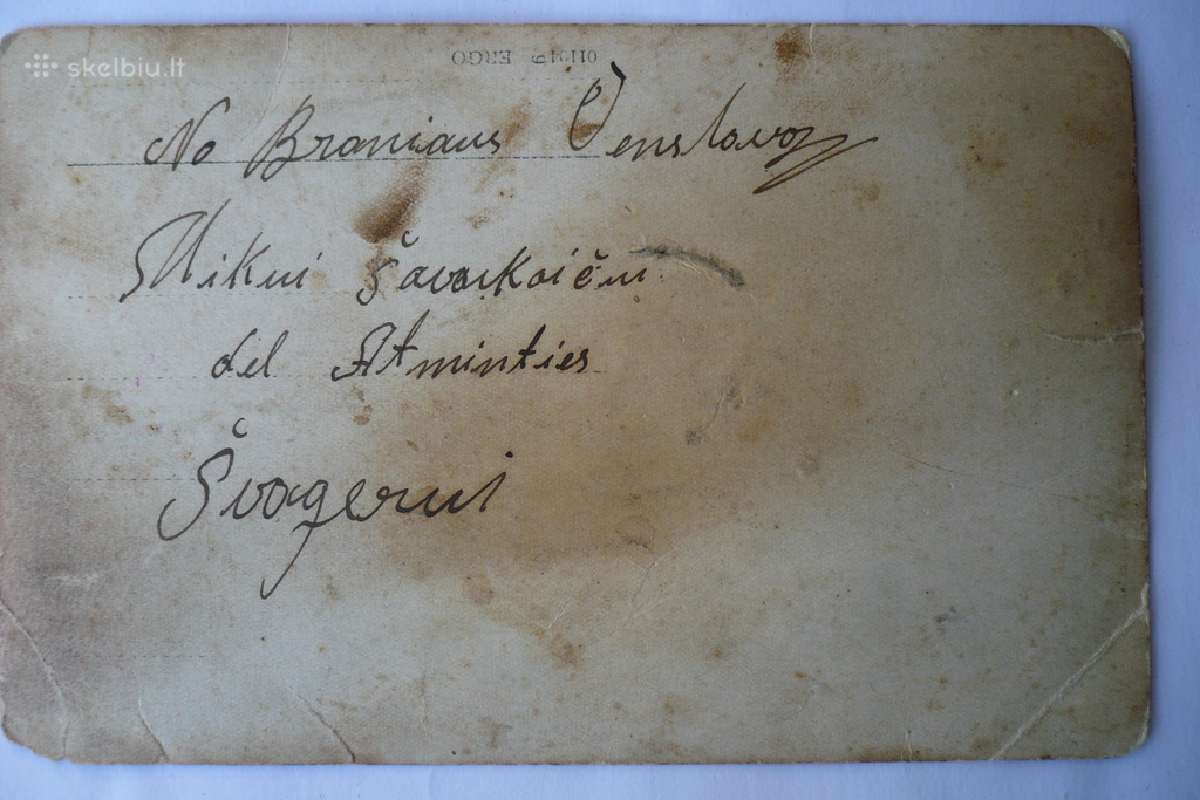 skelbiu.lt
ERGO
No Broniaus Venslavoz
Mikui Šavackoičiu
del Atminties
Švogerui